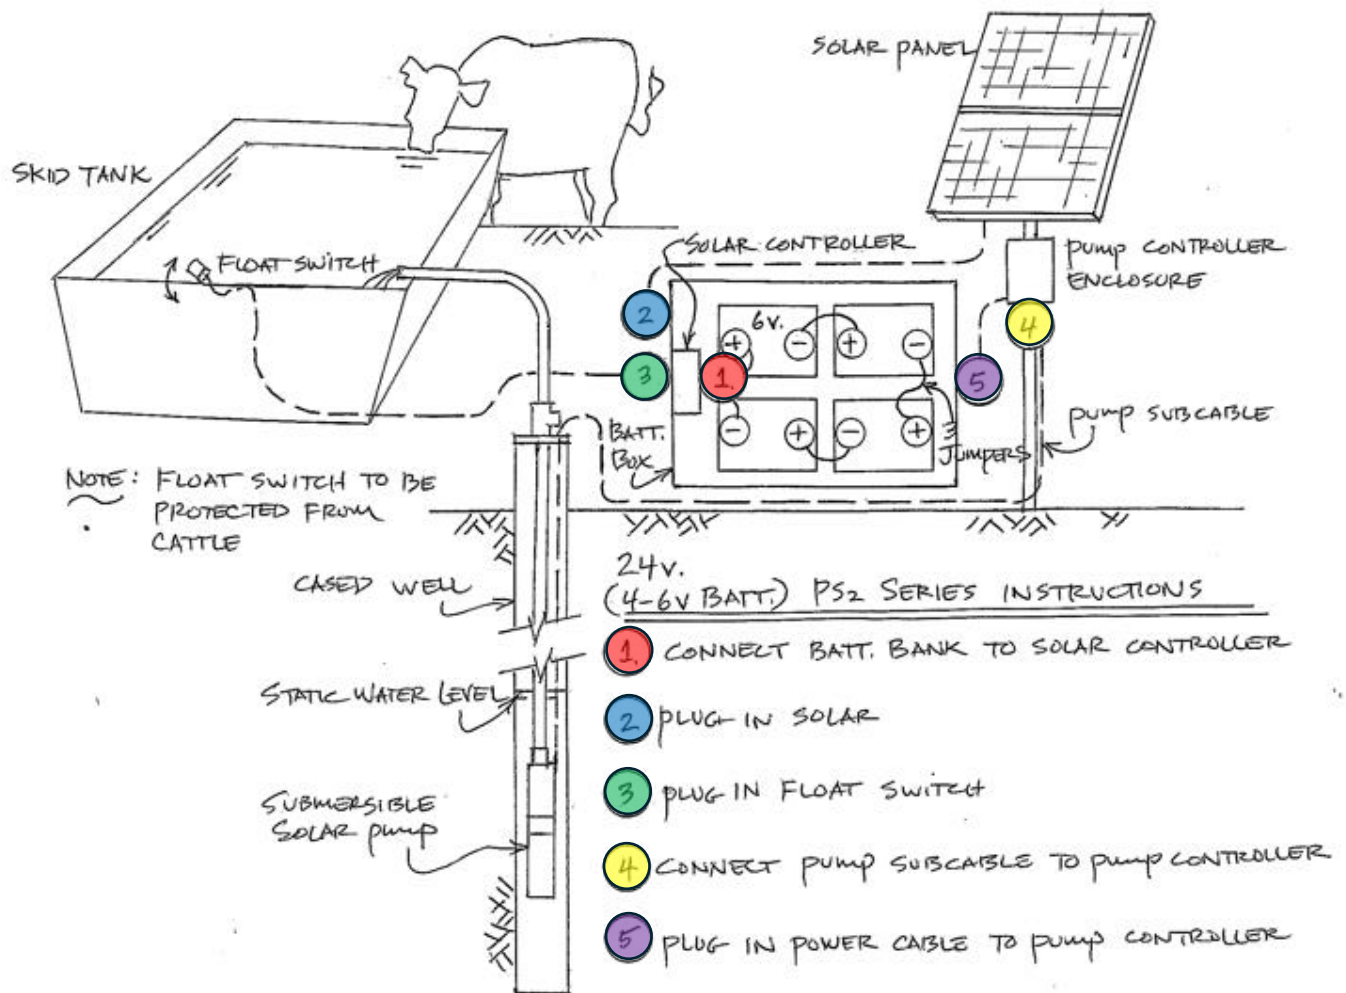 SOLAR PANEL
SKID TANK
FLOAT SWITCH
SOLAR CONTROLLER
PUMP CONTROLLER
ENCLOSURE
2
6V.
+ - + -
3
1.
4
5
- + - +
BATT.
BOX
JUMPERS
PUMP SUBCABLE
NOTE: FLOAT SWITCH TO BE
PROTECTED FROM
CATTLE
CASED WELL
STATIC WATER LEVEL
SUBMERSIBLE
SOLAR PUMP
24V.
(4-6V BATT.) PS2 SERIES INSTRUCTIONS
1. CONNECT BATT. BANK TO SOLAR CONTROLLER
2 PLUG IN SOLAR
3 PLUG IN FLOAT SWITCH
4 CONNECT PUMP SUBCABLE TO PUMP CONTROLLER
5 PLUG IN POWER CABLE TO PUMP CONTROLLER